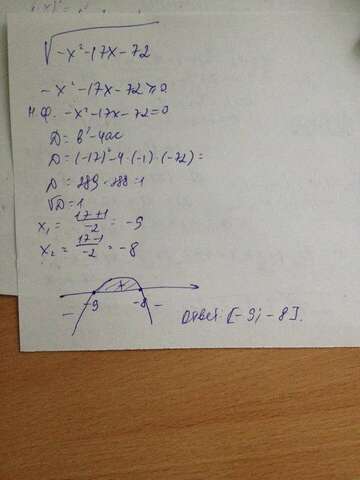 √-x²-17x-72
-x²-17x-72≥0
н.ф. -x²-17x-72=0
D = b²-4ac
D = (-17)²-4·(-1)·(-72)=
D = 289-288=1
√D=1
x₁ = 17+1/-2 = -9
x₂ = 17-1/-2 = -8
+
-9 -8
- -
Ответ: [-9; -8].